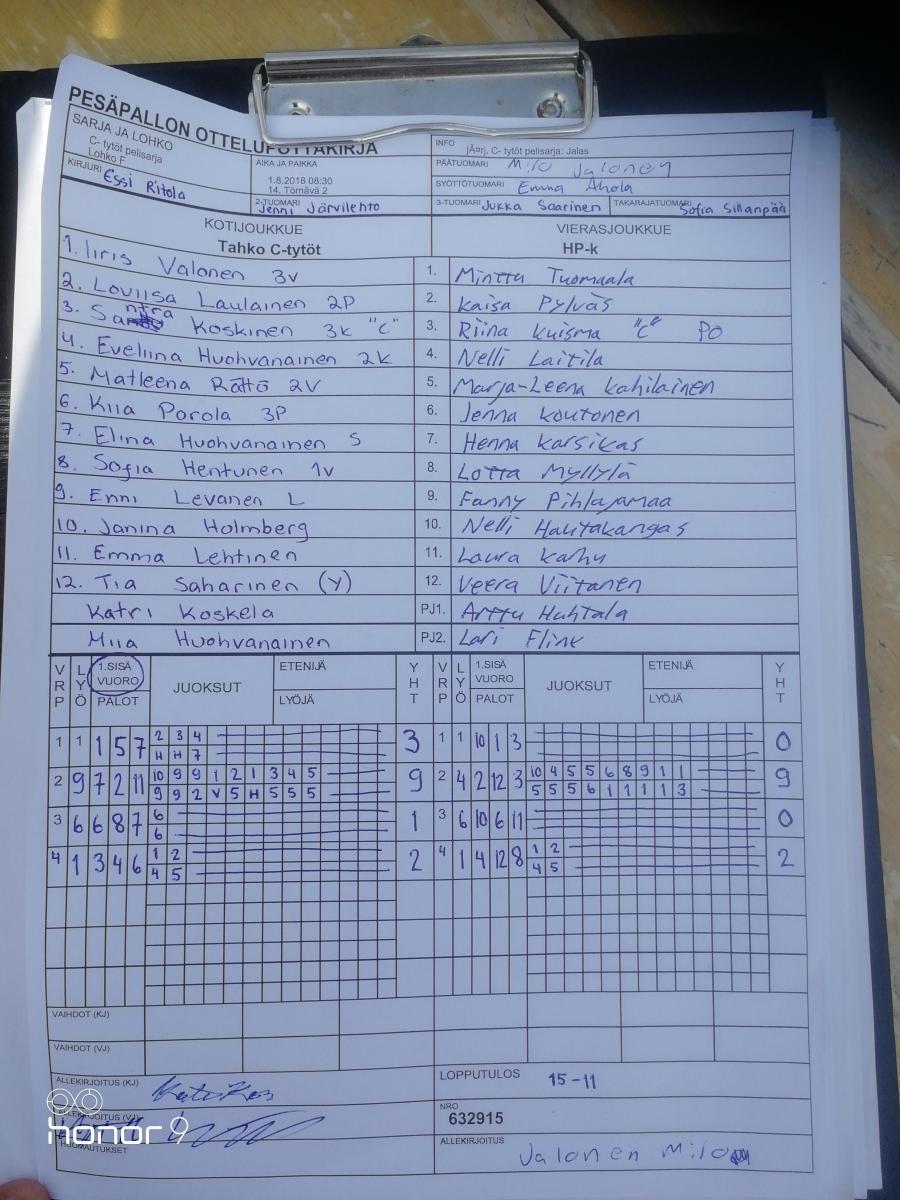 PESÄPALLON OTTELUPÖYTÄKIRJA
SARJA JA LOHKO
C- tytöt pelisarja
Lohko F
AIKA JA PAIKKA
1.8.2018 08:30
14. Törnävä 2
INFO
jÃ¤rj. C- tytöt pelisarja: Jalas
PÄÄTUOMARI Milo Jalonen
SYÖTTÖTUOMARI Emma Ahola
KIRJURI Essi Ritola
2-TUOMARI Jenni Järvilehto
3-TUOMARI Jukka Saarinen
TAKARAJATUOMARI Sofia Sillanpää
KOTIJOUKKUE
Tahko C-tytöt
VIERASJOUKKUE
HP-k
1. Iiris Valonen 3v
1. Minttu Tuomaala
2. Loviisa Laulainen 2P
2. Kaisa Pylväs
3. Santra Koskinen 3k "C"
3. Riina Kuisma "C" PO
4. Eveliina Huohvanainen 2k
4. Nelli Laitila
5. Matleena Rättö 2V
5. Marja-Leena Kahilainen
6. Kiia Porola 3P
6. Jenna Koutonen
7. Elina Huohvanainen S
7. Henna Karsikas
8. Sofia Hentunen 1v
8. Lotta Myllylä
9. Enni Levanen L
9. Fanny Pihlajamaa
10. Janina Holmberg
10. Nelli Hautakangas
11. Emma Lehtinen
11. Laura Karhu
12. Tia Saharinen (Y)
12. Veera Viitanen
Katri Koskela
PJ1. Arttu Huhtala
Miia Huohvanainen
PJ2. Lari Flink
VRP LYÖ 1.SISÄ VUORO PALOT JUOKSUT ETENIJÄ LYÖJÄ YHT
VRP LYÖ 1.SISÄ VUORO PALOT JUOKSUT ETENIJÄ LYÖJÄ YHT
1 1 1 5 7 2 3 4 3
H H 7
1 1 10 1 3 0
2 9 7 2 11 10 9 9 1 2 1 3 4 5 9
9 9 2 V 5 H 5 5 5
2 4 2 12 3 10 4 5 5 6 8 9 1 1 9
5 5 5 6 1 1 1 1 3
3 6 6 8 7 6 1
6
3 6 10 6 11 0
4 1 3 4 6 1 2 2
4 5
4 1 4 12 8 1 2 2
4 5
VAIHDOT (KJ)
VAIHDOT (VJ)
ALLEKIRJOITUS (KJ)
LOPPUTULOS 15-11
ALLEKIRJOITUS (VJ)
NRO
632915
HUOMAUTUKSET
ALLEKIRJOITUS Jalonen Milo
honor 9